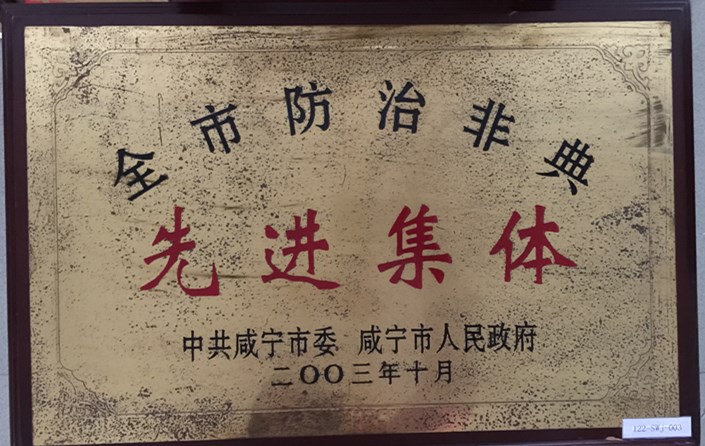 全市防治非典
先进集体
中共咸宁市委 咸宁市人民政府
二〇〇三年十月
122-SWJ-003